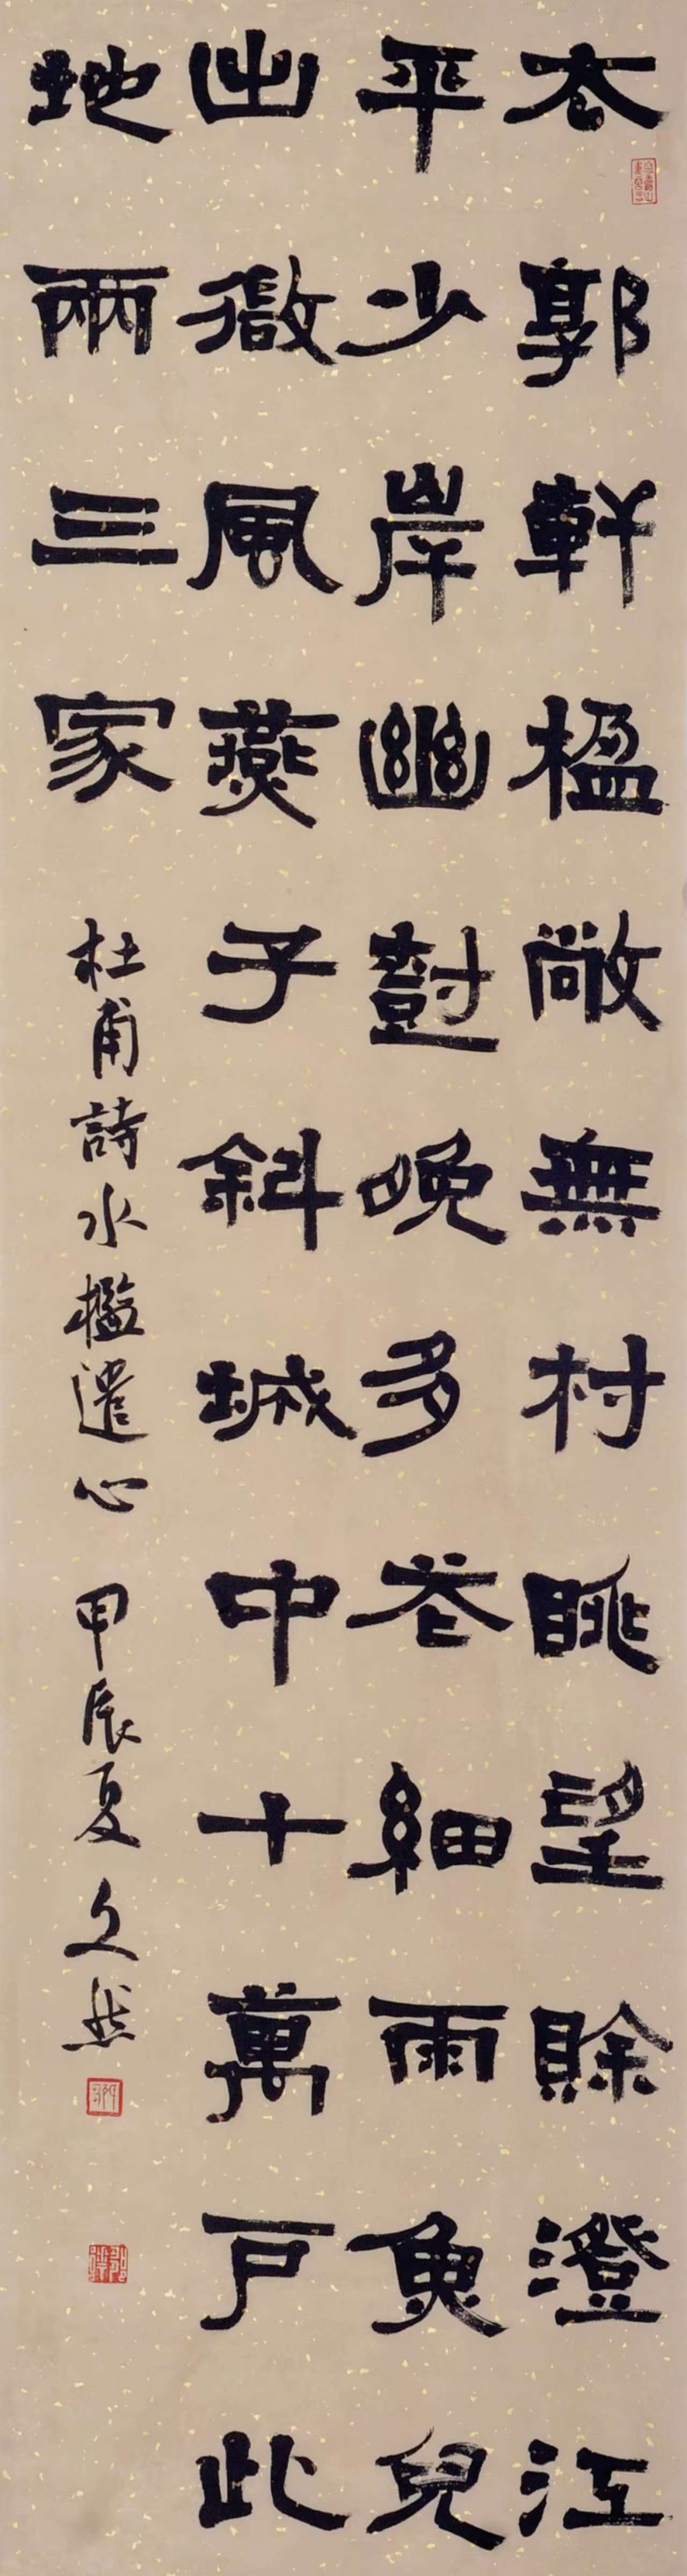 去郭軒楹敞無村眺望賒澄江
平少岸幽尌晚多花細雨魚兒
出微風燕子斜城中十萬戶此
地兩三家
杜甫詩水檻遣心 甲辰夏久然